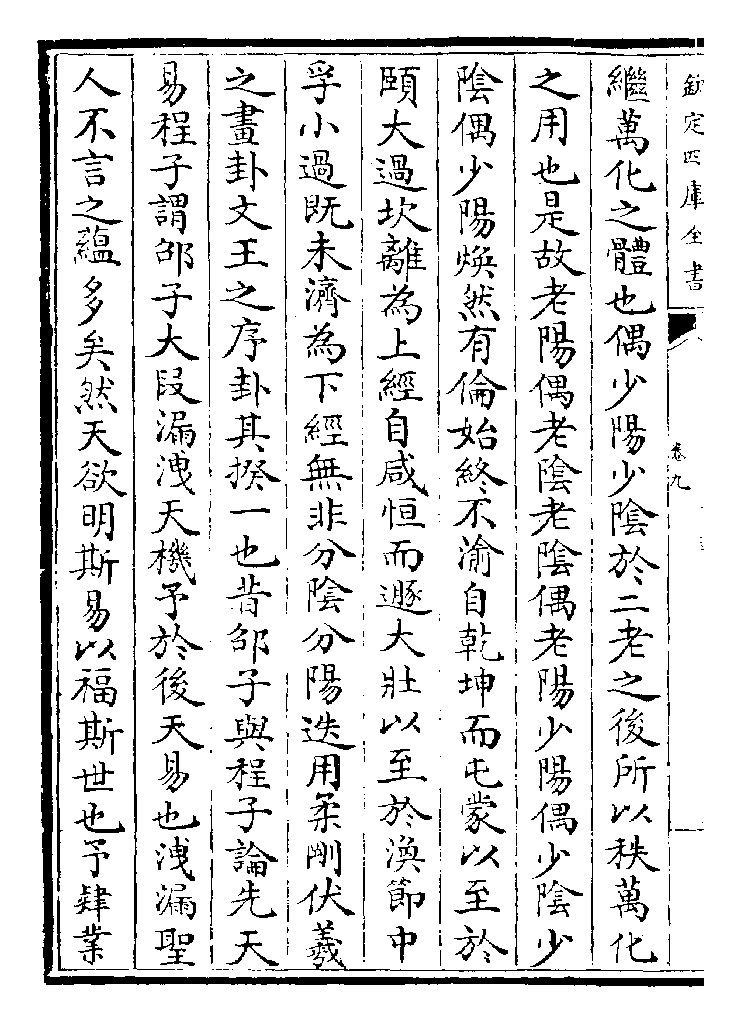 欽定四庫全書
卷九
繼萬化之體也偶少陽少陰於二老之後所以秩萬化
之用也是故老陽偶老陰老陰偶老陽少陽偶少陰少
陰偶少陽煥然有倫始終不渝自乾坤而屯蒙以至於
頤大過坎離為上經自咸恒而遯大壯以至於渙節中
孚小過既未濟為下經無非分陰分陽迭用柔剛伏羲
之畫卦文王之序卦其揆一也昔邵子與程子論先天
易程子謂邵子大段漏洩天機予於後天易也洩漏聖
人不言之蘊多矣然天欲明斯易以福斯世也予肄業